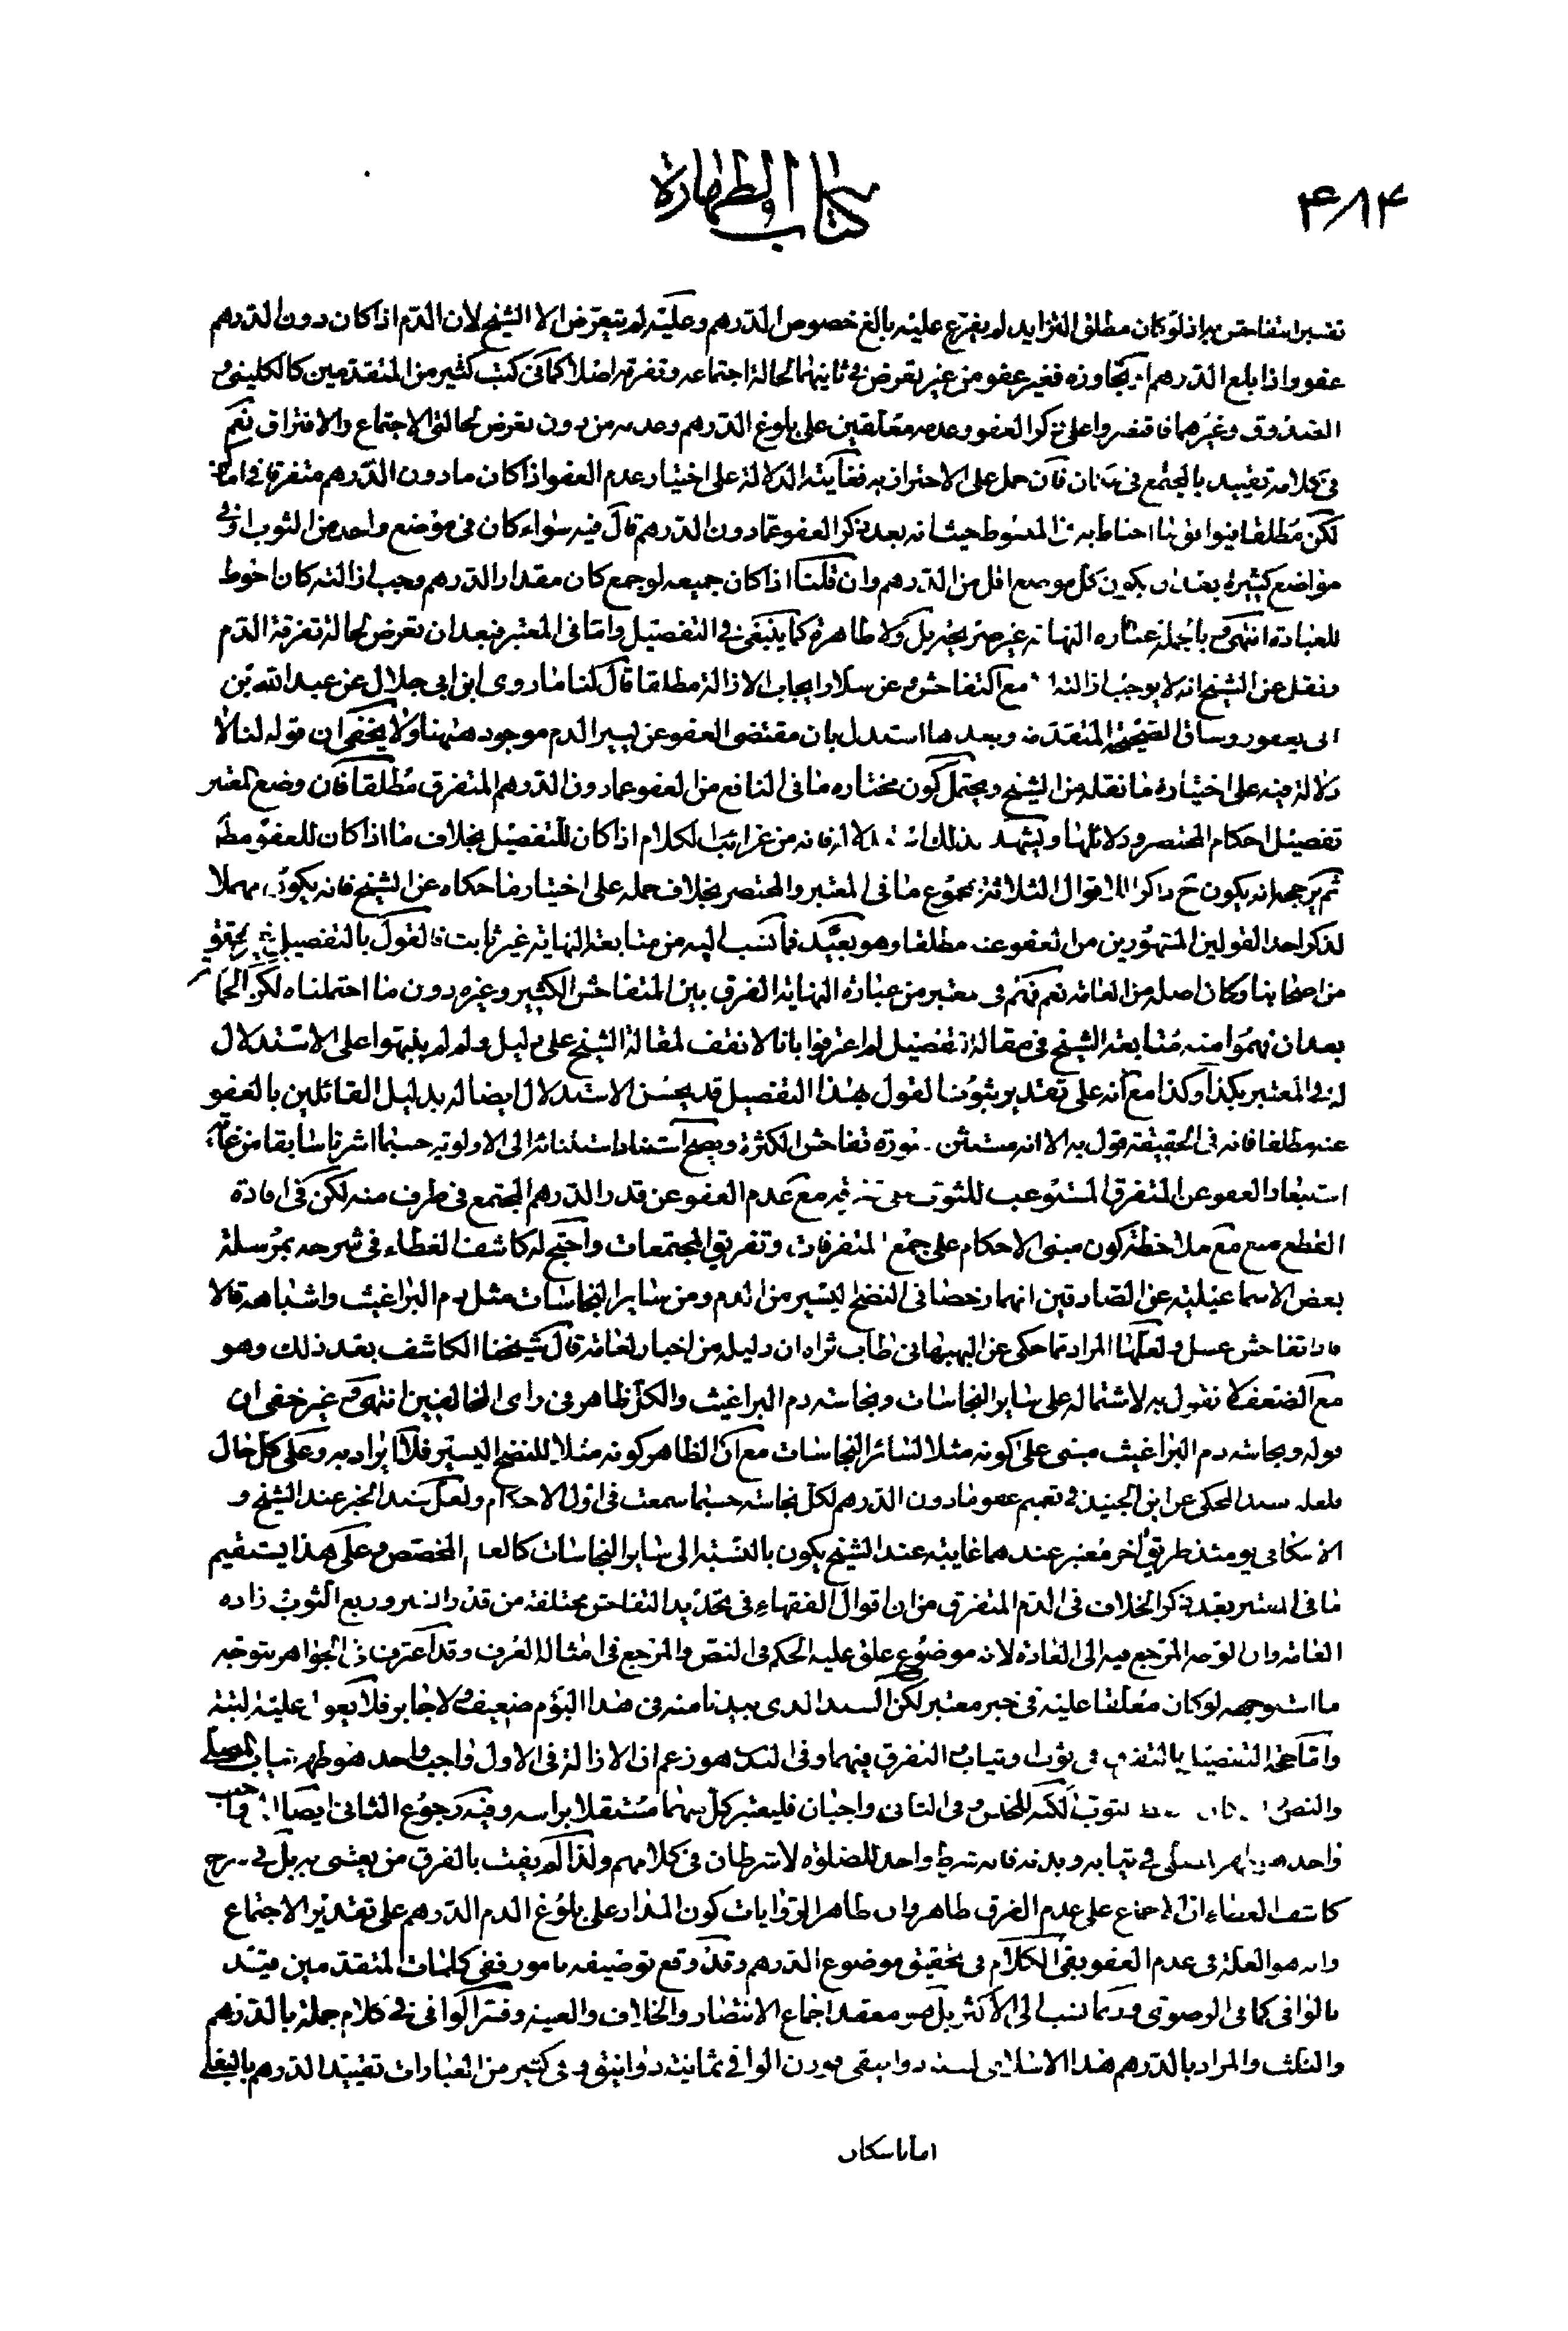 كتاب الطهارة
۴۸۱۴
تفسير التفاحش به اذ لو كان مطلق التزايد لم يفرع عليه بالغ خصوص الدرهم وعليه لم يتعرض الا الشيخ لان الدم اذا كان دون الدرهم
عفو واذا بلغ الدرهم او تجاوزه فغير عفو من غير تعرض في ثانيهما لحالة اجتماعه وتفرقه اصلا كما في كتب كثير من المتقدمين كالكليني و
الصدوق وغيرهما فاقتصروا على ذكر العفو وعدمه معلقين على بلوغ الدرهم وعدمه من دون تعرض لحالتي الاجتماع والافتراق نعم
في كلامه تقييد بالمجتمع في فان حمل على الاحتراز به فغايته الدلالة على اختيار عدم العفو اذا كان مادون الدرهم متفرقا في اماكن
لكن مطلقا فيوافق ما احتاط به في المبسوط حيث انه بعد ذكر العفو عما دون الدرهم قال فيه سواء كان في موضع واحد من الثوب او في
مواضع كثيرة بعد ان يكون كل موضع اقل من الدرهم وان قلنا اذا كان جميعه لو جمع كان مقدار الدرهم وجب ازالته كان احوط
للعبادة انتهى وبالجملة عبارة النهاية غير صريحة بل ولا ظاهرة كما ينبغي في التفصيل واما في المعتبر فبعد ان تعرض لحالة تفرقة الدم
ونقل عن الشيخ انه لا يوجب ازالته مع التفاحش وعن سلار ايجاب الازالة مطلقا قال لنا ما روى ابن ابي جلال عن عبد الله بن
ابي يعفور وساق الصحيحة المتقدمة وبعدها استدل بان مقتضى العفو عن يسير الدم موجود ههنا ولا يخفى ان قوله لنا لا
دلالة فيه على اختياره ما نقله من الشيخ ويحتمل كون مختاره ما في النافع من العفو عما دون الدرهم المتفرق مطلقا فان وضع المعتبر
تفصيل احكام المختصر ودلائلها ويشهد بذلك فانه من غرائب الكلام اذا كان للتفصيل بخلاف ما اذا كان للعفو مط
ثم يرجحه انه يكون ح ذاكرا للاقوال الثلاثة بمجموع ما في المعتبر والمختصر بخلاف حمله على اختيار ما حكاه عن الشيخ فانه يكون مهملا
لذكر احد القولين المشهورين من العفو عنه مطلقا وهو بعيد فما نسب اليه من متابعة النهاية غير ثابت فالقول بالتفصيل غير محقق
من اصحابنا وكان اصله من العامة نعم فهم في المعتبر من عبارة النهاية الفرق بين المتفاحش الكثير وغيره دون ما احتملناه لكن الجماعة
بعد ان فهموا منه متابعة الشيخ في مقالة التفصيل لم اعترفوا بانا لا نقف لمقالة الشيخ على دليل ولم لم ينبهوا على الاستدلال
له في المعتبر بكذا وكذا مع انه على تقدير ثبوتنا لقول بهذا التفصيل قد يحسن الاستدلال ايضا له بدليل القائلين بالعفو
عنه مطلقا فانه في الحقيقة قول به الا انه مستثن صورة تفاحش الكثرة ويصح استناد استثنائه الى الاولوية حسبما اشرنا سابقا من غاية
استبعاد العفو عن المتفرق المستوعب للثوب مع عدم العفو عن قدر الدرهم المجتمع في طرف منه لكن في افادة
القطع منع مع ملاحظة كون مبنى الاحكام على جمع المتفرقات وتفريق المجتمعات واحتج له كاشف الغطاء في شرحه بمرسلة
بعض الاسماعيلية عن الصادقين انهما رخصا في النضح اليسير من الدم ومن ساير النجاسات مثل دم البراغيث واشباهه قالا
فاذا تفاحش غسل ولعلها المراد مما حكى عن البهبهاني طاب ثراه ان دليله من اخبار العامة قال شيخنا الكاشف بعد ذلك وهو
مع الضعف لا نقول به لاشتماله على ساير النجاسات ونجاسة دم البراغيث والكل ظاهر في راى المخالفين انتهى وغير خفي ان
قوله ونجاسة دم البراغيث مبنى على كونه مثلا لسائر النجاسات مع ان الظاهر كونه مثلا للنضح اليسير فلا ايراد به وعلى كل حال
فلعله سند المحكى عن ابن الجنيد في تعميم عفو مادون الدرهم لكل نجاسة حسبما سمعت في اول الاحكام ولعل سند الخبر عند الشيخ و
الاسكافي يومئذ طريق اخر معتبر عندهما غايته عند الشيخ يكون بالنسبة الى ساير النجاسات كالعام المخصص وعلى هذا يستقيم
ما في المعتبر بعد ذكر الخلاف في الدم المتفرق من ان اقوال الفقهاء في تحديد التفاحش مختلفة من قدر الشبر وربع الثوب زاده
العامة وان الوجه المرجع فيه الى العادة لانه موضوع علق عليه الحكم في النص والمرجع في امثاله العرف وقد اعترف في الجواهر بتوجيه
ما استوجهه لو كان معلقا عليه في خبر معتبر لكن السند الذي بيدنا منه في هذا اليوم ضعيف ولا جابر فلا يعول عليه البتة
واما حجة التفصيل بالتفريق في ثوب وثياب التفرق فيهما وفي البدن هو زعم ان الازالة في الاول واجب واحد هو طهر ثياب المصلي
والنص الثوب لكنه للمخاس وفي الثاني واجبان فليعتبر كل منهما مستقلا براسه وفيه رجوع الثاني ايضا الى واجب
واحد هو طهر المصلي في ثيابه وبدنه فانه شرط واحد للصلوة لا شرطان في كلامهم ولذا لم يفت بالفرق من يعتنى به بل في شرح
كاشف الغطاء ان الاجماع على عدم الفرق ظاهر وان ظاهر الروايات كون المدار على بلوغ الدم الدرهم على تقدير الاجتماع
وانه هو العلة في عدم العفو بقى الكلام في تحقيق موضوع الدرهم وقد وقع توصيفه بامور ففي كلمات المتقدمين قيّد
بالوافي كما في الرضوي وربما نسب الى الاكثر بل هو معقد اجماع الانتصار والخلاف والغنية وفسر الوافي في كلام جملة بالدرهم
والثلث والمراد بالدرهم هذا الاسلامي لستة دوانيق فوزن الوافي ثمانية دوانيق وفي كثير من العبارات تقييد الدرهم بالبغلي
اما باسكان